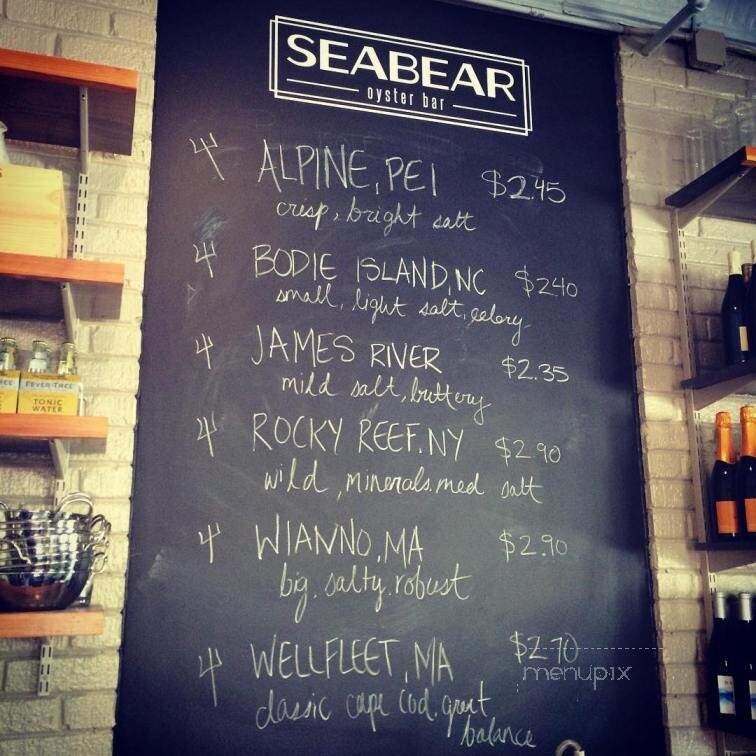 SEABEAR
oyster bar
ALPINE, PEI $2.45
crisp, bright salt
BODIE ISLAND, NC $2.40
small, light salt, celery
JAMES RIVER $2.35
mild salt, buttery
ROCKY REEF, NY $2.90
wild, minerals, med salt
WIANNO, MA $2.90
big, salty, robust
WELLFLEET, MA $2.70
classic cape cod, great
balance
menupix
FEVER-TREE
TONIC
WATER